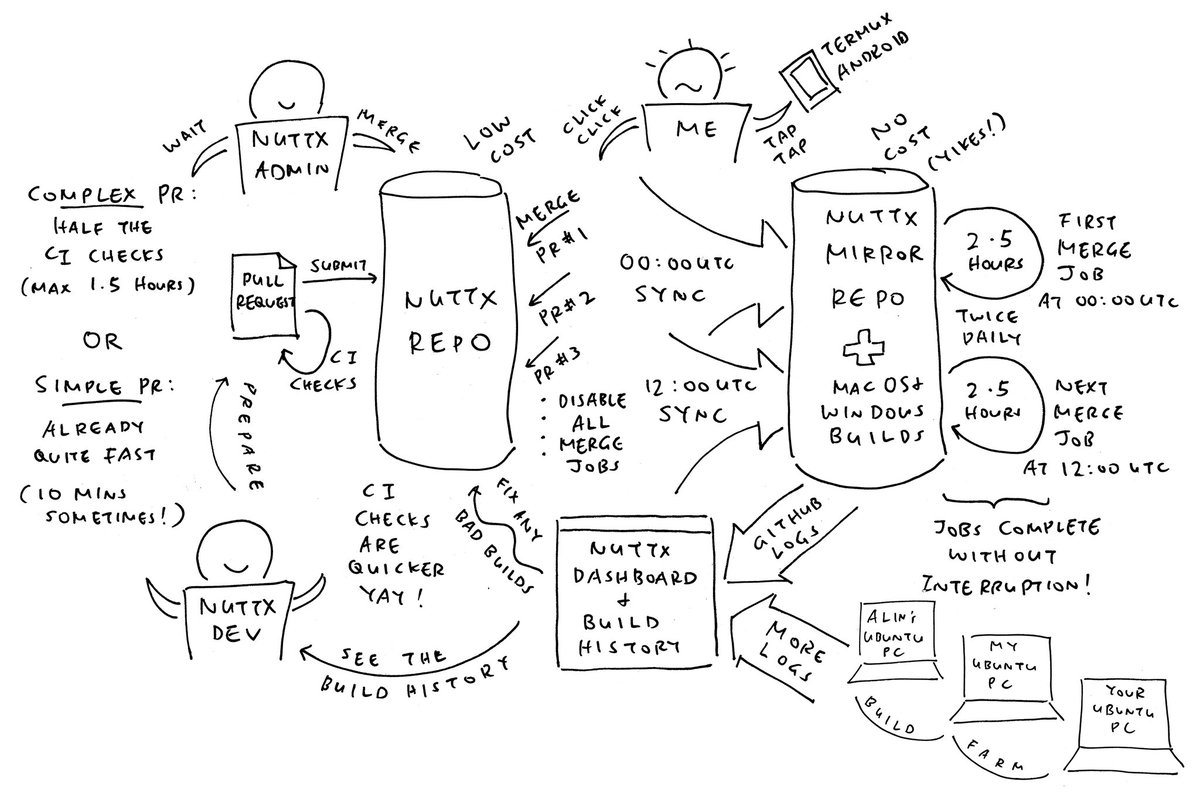 WAIT
NUTTX
ADMIN
MERGE
COMPLEX PR:
HALF THE
CI CHECKS
(MAX 1.5 HOURS)
OR
SIMPLE PR:
ALREADY
QUITE FAST
(10 MINS
SOMETIMES!)
PULL
REQUEST
SUBMIT
CI
CHECKS
PREPARE
LOW
COST
NUTTX
REPO
MERGE
PR#1
PR#2
PR#3
• DISABLE
• ALL
• MERGE
• JOBS
CLICK
CLICK
ME
TAP
TAP
TERMUX
ANDROID
NO
COST
(YIKES!)
00:00 UTC
SYNC
12:00 UTC
SYNC
NUTTX
MIRROR
REPO
MACOS &
WINDOWS
BUILDS
2.5
HOURS
FIRST
MERGE
JOB
AT 00:00 UTC
TWICE
DAILY
2.5
HOURS
NEXT
MERGE
JOB
AT 12:00 UTC
JOBS COMPLETE
WITHOUT
INTERRUPTION!
NUTTX
DEV
CI
CHECKS
ARE
QUICKER
YAY!
FIX ANY
BAD BUILDS
SEE THE
BUILD HISTORY
NUTTX
DASHBOARD
&
BUILD
HISTORY
GITHUB
LOGS
MORE
LOGS
ALIN'S
UBUNTU
PC
MY
UBUNTU
PC
YOUR
UBUNTU
PC
BUILD
FARM